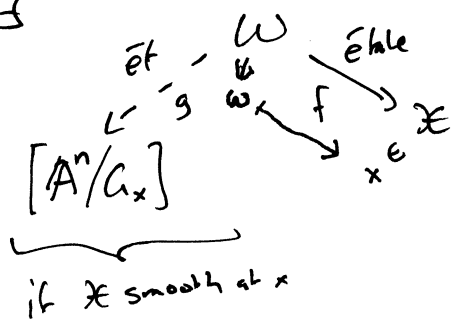 W
ét étale
g w f 𝒳
[Aⁿ/Gₓ] x ∈
if 𝒳 smooth at x